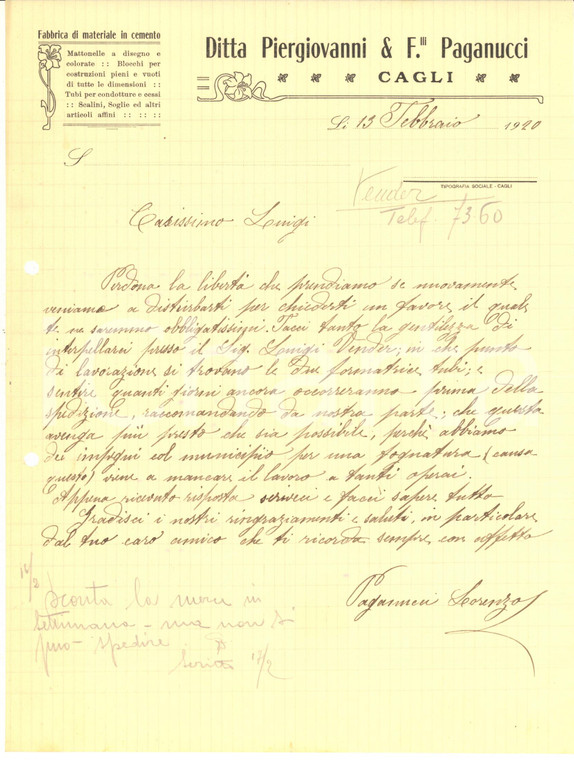 Fabbrica di materiale in cemento
Mattonelle a disegno e
colorate :: Blocchi per
costruzioni pieni e vuoti
di tutte le dimensioni ::
Tubi per condotture e cessi
:: Scalini, Soglie ed altri
articoli affini :: :: ::
Ditta Piergiovanni & F.lli Paganucci
CAGLI
Lì 13 Febbraio 1920
S
TIPOGRAFIA SOCIALE - CAGLI
Vender
Telef. 7360
Carissimo Luigi
Perdona la libertà che prendiamo se nuovamente
veniamo a disturbarti per chiederti un favore il quale
te ne saremmo obbligatissimi. Facci tanto la gentilezza di
interpellare presso il Sig. Luigi Vender; in che punto
di lavorazione si trovano le due formatrice tubi; e
sentire quanti giorni ancora occorreranno prima della
spedizione, raccomandando da nostra parte; che questa
avenga più presto che sia possibile, perchè abbiamo
dei impegni col municipio per una fognatura (causa
questo) viene a mancare il lavoro a tanti operai.
Appena ricevuto risposta scriveci e facci sapere tutto
Gradisci i nostri ringraziamenti e saluti, in particolare
dal tuo caro amico che ti ricorda sempre con affetto
Paganucci Lorenzo
la merce in
settimana - ma non si
può spedire
17/2